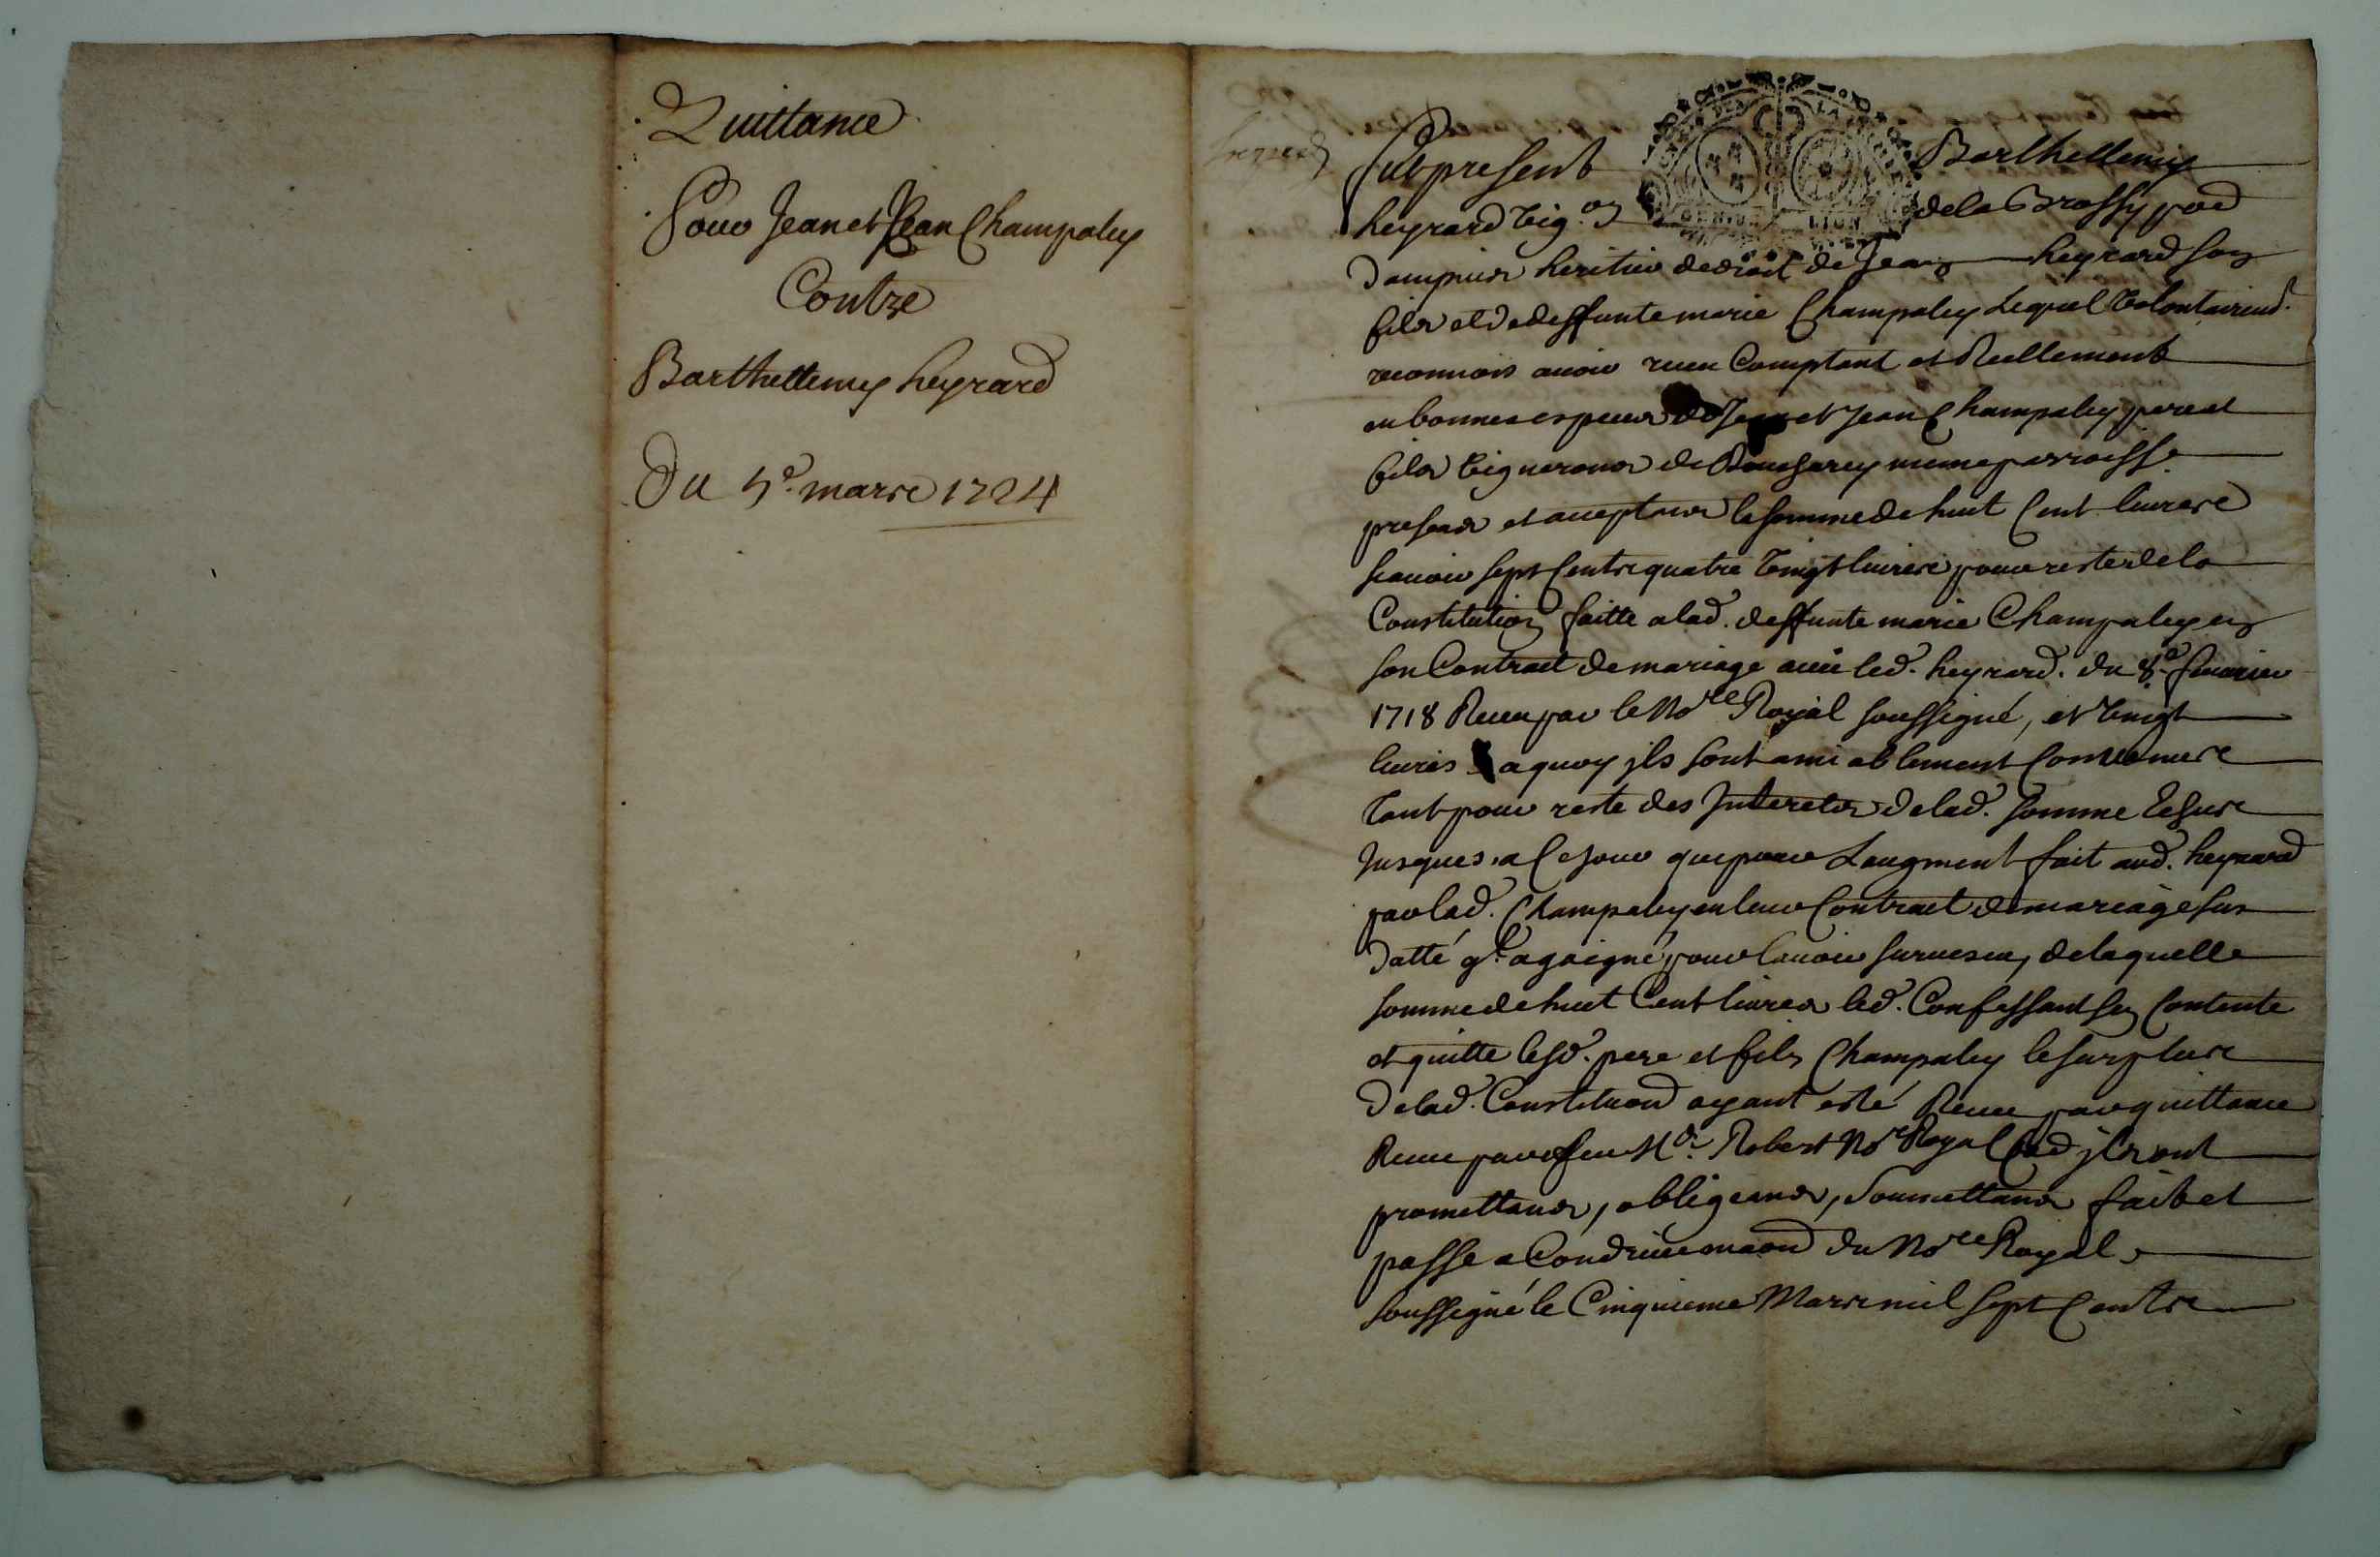 Quittance
Pour Jean et Jean Champaley
Contre
Barthellemy heyrard
Du 5e. mars 1724
Fut present Barthellemy
heyrard vig.on de la Brossy par
heritier de droit de Jean heyrard son
fils et de deffunte marie Champaley Lequel volontairemt.
reconnois avoir receu Comptant et Reellement
en bonnes especes de Jean et Jean Champaley pere et
fils vignerons de meme parroisse
presens et acceptans la somme de huit Cent livres
scavoir sept Cents quatre vingt livres pour reste de la
Constitution faitte a lad. deffunte marie Champaley en
son Contract de mariage avec led. heyrard. du 8e. fevrier
1718 Receu par le No.re Royal soussigné, et vingt
livres a quoy jls sont amiablement Convenus
tant pour reste des Interets de lad. somme
Jusques a Ce jour que pour Laugment fait aud. heyrard
par lad. Champaley en leur Contract de mariage sus
datté ql. a gaigné pour lavoir survescu, de laquelle
somme de huit Cent livres led. Confessant sen Contente
et quitte lesd. pere et fils Champaley le surplus
de lad. Constituon ayant esté Receu par quittance
Receue par feu Me. Robert No.re Royal jls ont
promettans, obligeans, soumettans fait et
passe a Condrieu maon du No.re Royal
soussigné le Cinquieme Mars mil sept Cents
GENER LION